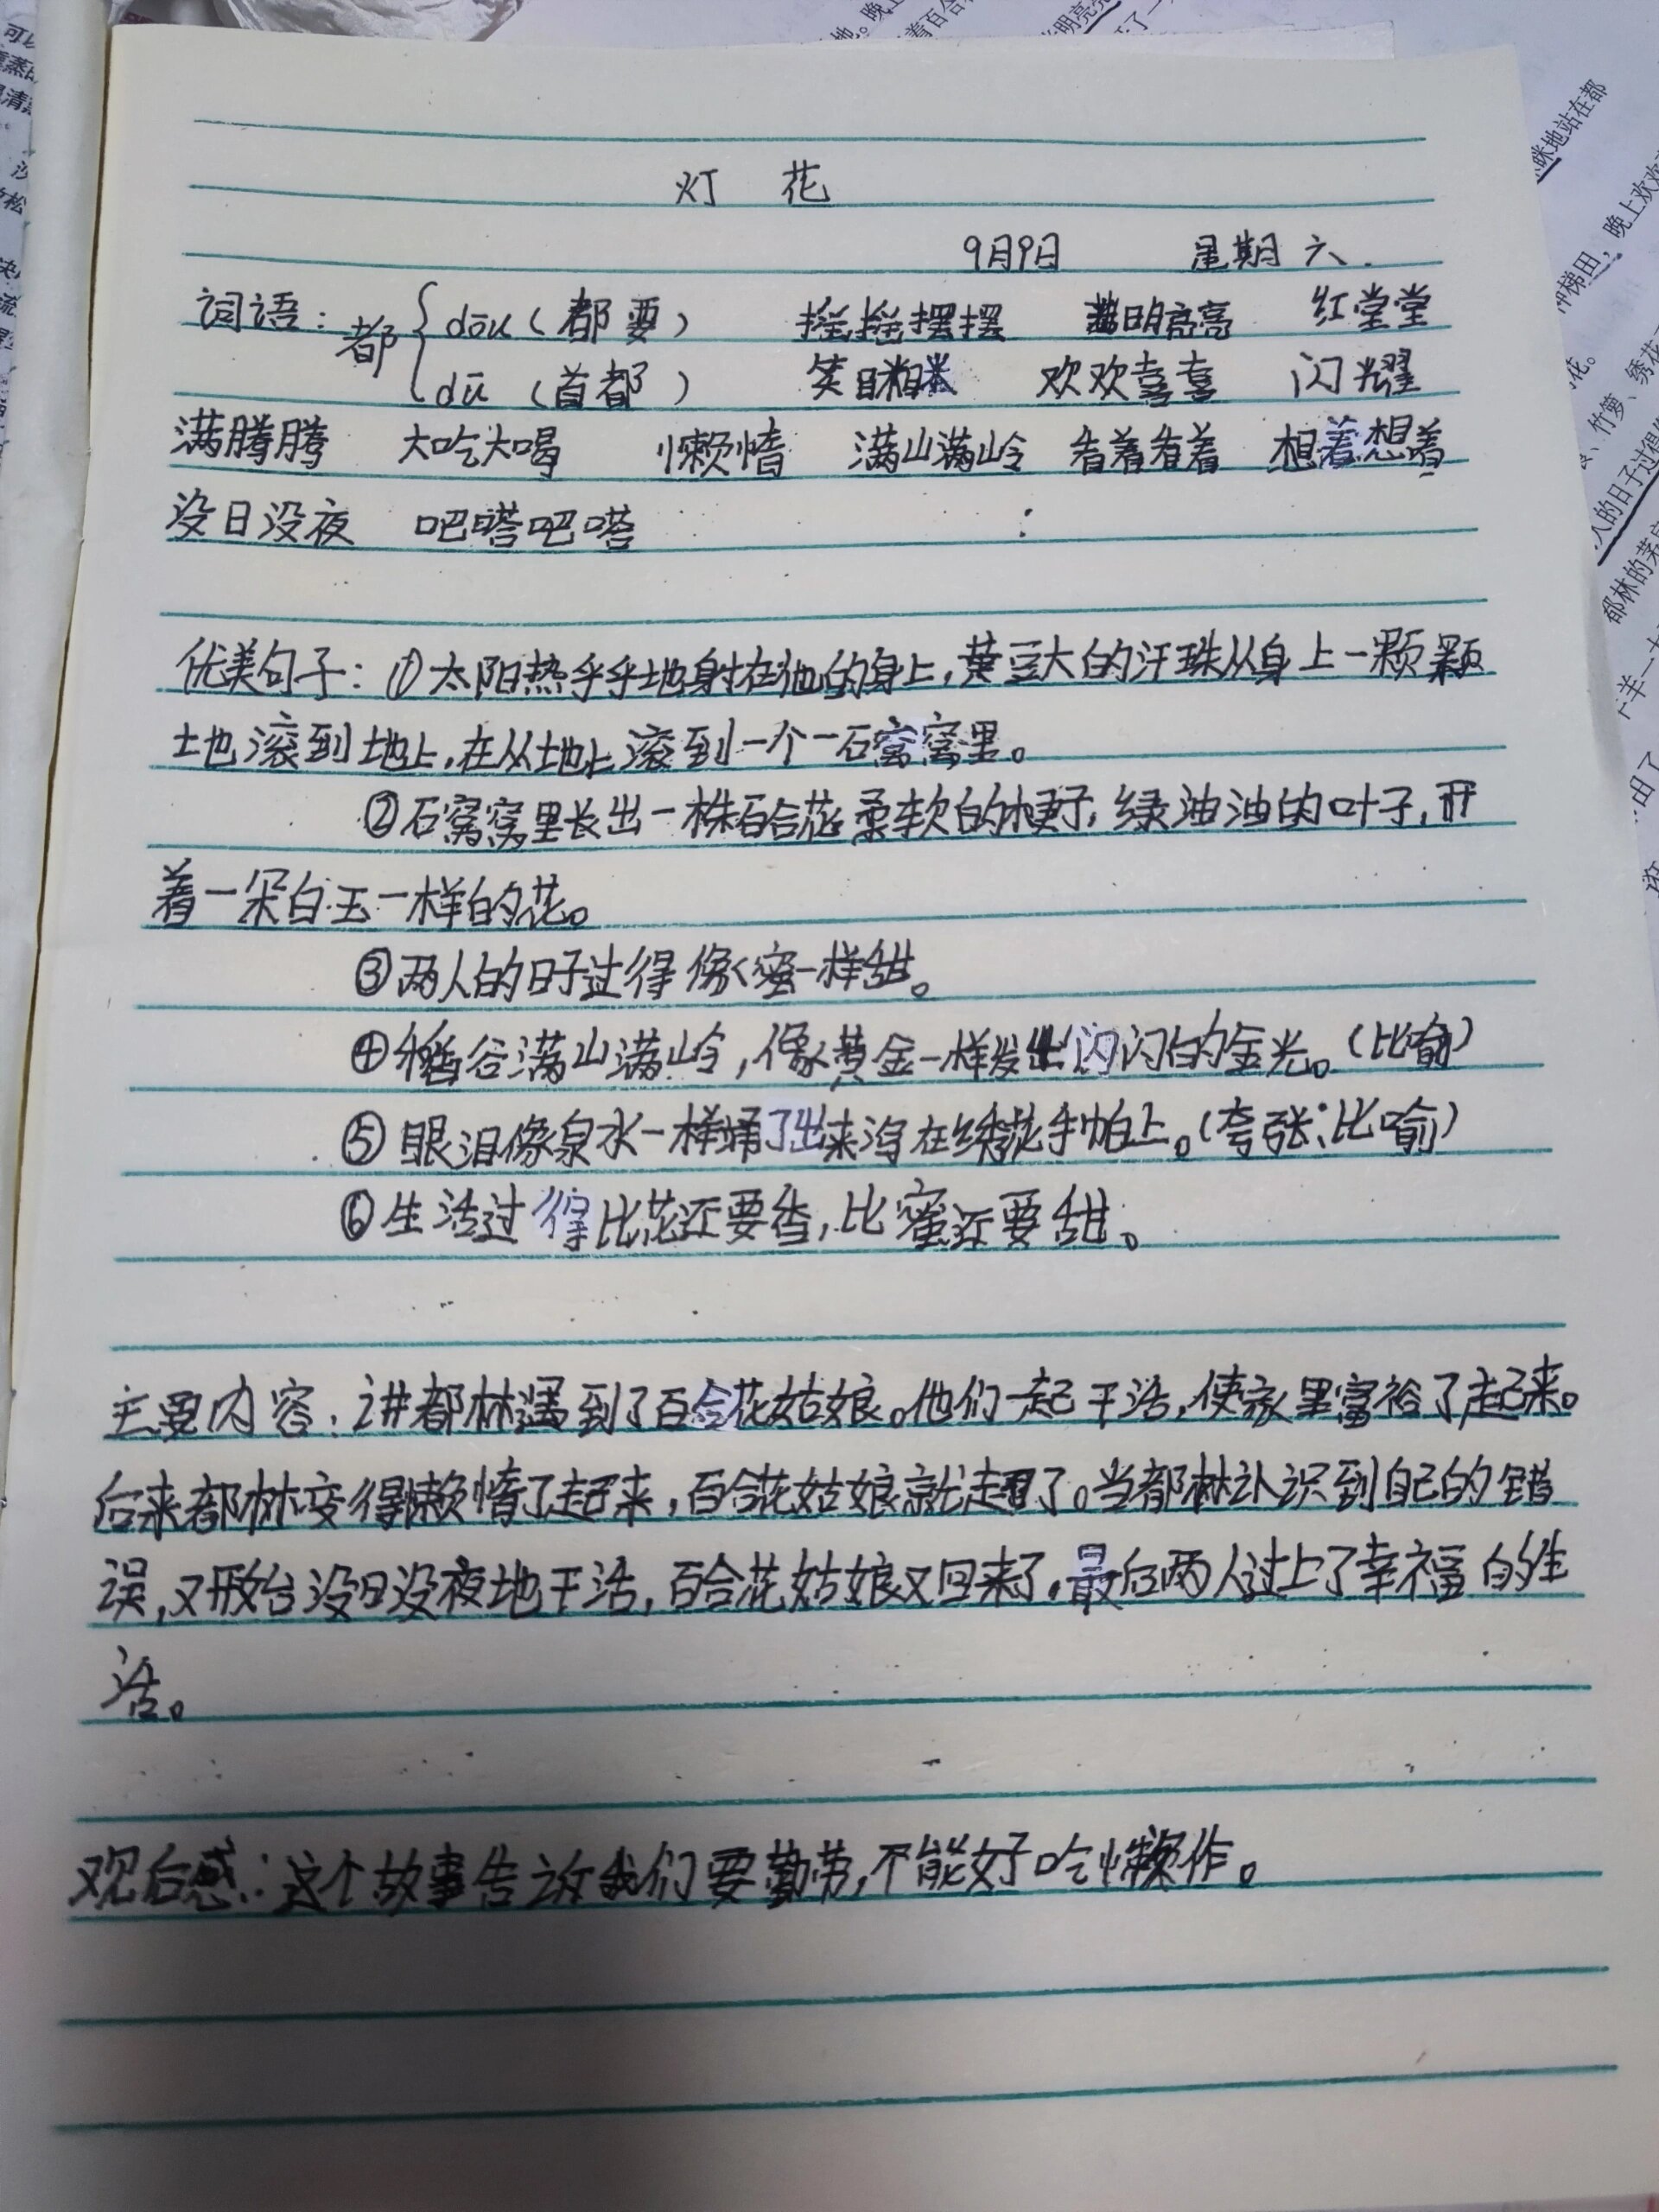 灯 花
9月9日 星期六.
词语: 都 { dōu(都要) 摇摇摆摆 明亮亮 红堂堂
dū (首都) 笑眯眯 欢欢喜喜 闪耀
满腾腾 大吃大喝 懒惰 满山满岭 看着看着 想着想着
没日没夜 吧嗒吧嗒
优美句子:①太阳热乎乎地射在他的身上,黄豆大的汗珠从身上一颗颗
地滚到地上,在从地上滚到一个一石窝窝里。
②石窝窝里长出一株百合花柔软的梗子,绿油油的叶子,开
着一朵白玉一样的花。
③两人的日子过得像蜜一样甜。
④稻谷满山满岭,像黄金一样发出闪闪的金光。(比喻)
⑤眼泪像泉水一样涌了出来泻在绣花手帕上。(夸张;比喻)
⑥生活过得比花还要香,比蜜还要甜。
主要内容:讲都林遇到了百合花姑娘。他们一起干活,使家里富裕了起来。
后来都林变得懒惰了起来,百合花姑娘就走了。当都林认识到自己的错
误,又开始没日没夜地干活,百合花姑娘又回来了,最后两人过上了幸福的生
活。
观后感:这个故事告诉我们要勤劳,不能好吃懒作。